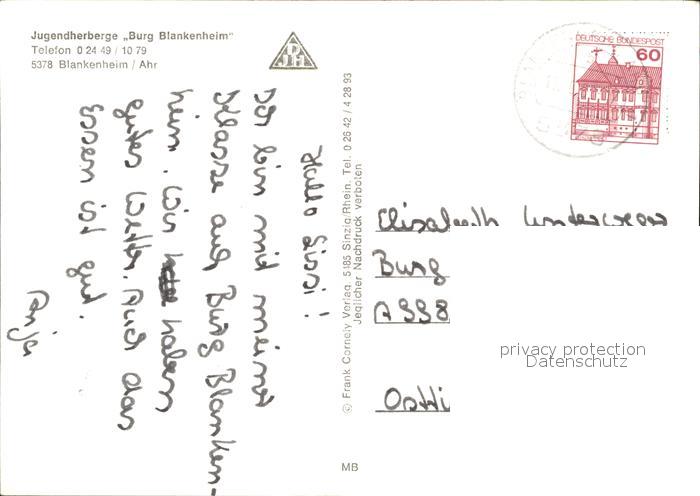 Jugendherberge „Burg Blankenheim"
Telefon 0 24 49 / 10 79
5378 Blankenheim / Ahr
DJH
DEUTSCHE BUNDESPOST
60
Hallo Sissi!
Ich bin mit meiner
Klasse auf Burg Blanken-
heim. Wir haben
gutes Wetter. Auch das
Essen ist gut.
Anja
© Frank Cornely Verlag, 5485 Sinzig/Rhein, Tel. 0 26 42 / 4 28 93
Jeglicher Nachdruck verboten
Elisabeth
Burg
privacy protection
Datenschutz
MB